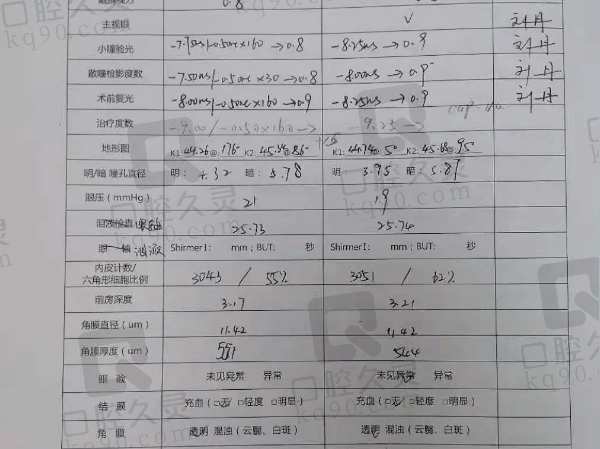 0.8
主视眼 V
小瞳验光 -7.75DS/-0.50DC×160→0.8 -8.25DS→0.9
散瞳检影度数 -7.50DS/-0.50DC×30→0.8 -8.00DS→0.9
术前复光 -8.00DS/-0.50DC×160→0.9 -8.25DS→0.9
治疗度数 -9.00/-0.50×160→ -9.25→
地形图 K1:44.26@176° K2:45.58@86° K1:44.74@5° K2:45.68@95°
明/暗 瞳孔直径 明:4.32 暗:5.78 明:3.95 暗:5.87
眼压(mmHg) 21 19
泪液检查 眼轴 25.73 25.74
眼 轴 泪液 ShirmerI: mm;BUT: 秒 ShirmerI: mm;BUT: 秒
内皮计数/
六角形细胞比例 3043 / 55% 3051 / 62%
前房深度 3.17 3.21
角膜直径(um) 11.42 11.42
角膜厚度(um) 551 544
眼 睑 未见异常 异常 未见异常 异常
结 膜 充血(□无 □轻度 □明显) 充血(□无 □轻度 □明显)
角 膜 透明 混浊(云翳、白斑) 透明 混浊(云翳、白斑)
口腔久灵
kq90.com